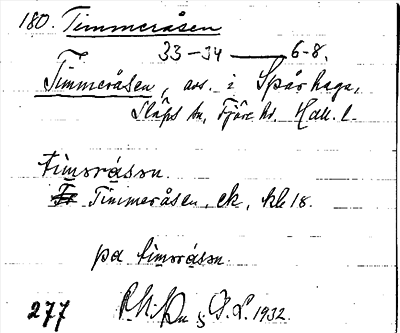 180. Timmeråsen
33-34 — 6-8.
Timmeråsen, avs. i Spårhaga,
Släps sn, Fjäre hd. Hall. l.
timəråsən.
Timmeråsen, ek, kl. 18.
pa timəråsən.
277 1932.